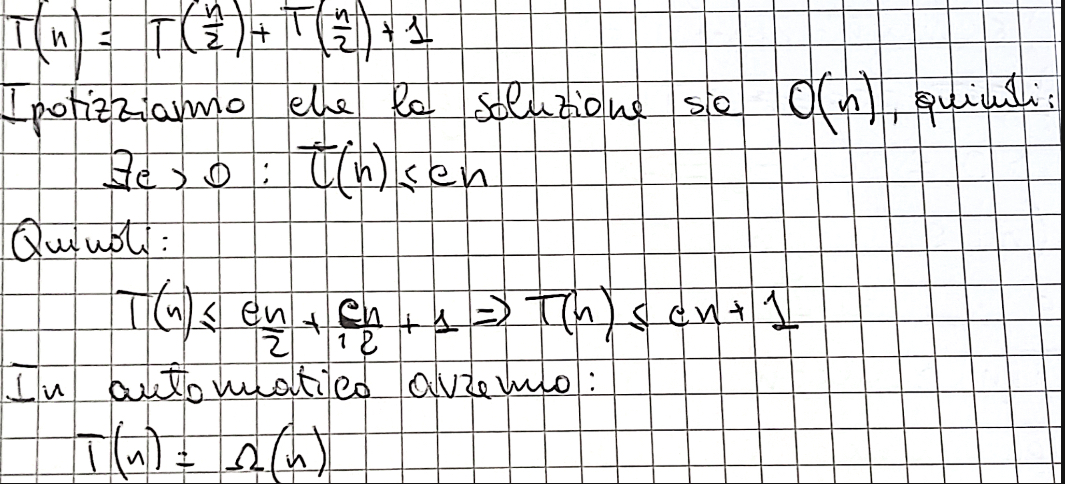 T(n) = T(n/2) + T(n/2) + 1
Ipotizziamo che la soluzione sia O(n), quindi:
∃c > 0 : T(n) ≤ cn
Quindi:
T(n) ≤ cn/2 + cn/2 + 1 ⇒ T(n) ≤ cn + 1
In automatico avremo:
T(n) = Ω(n)